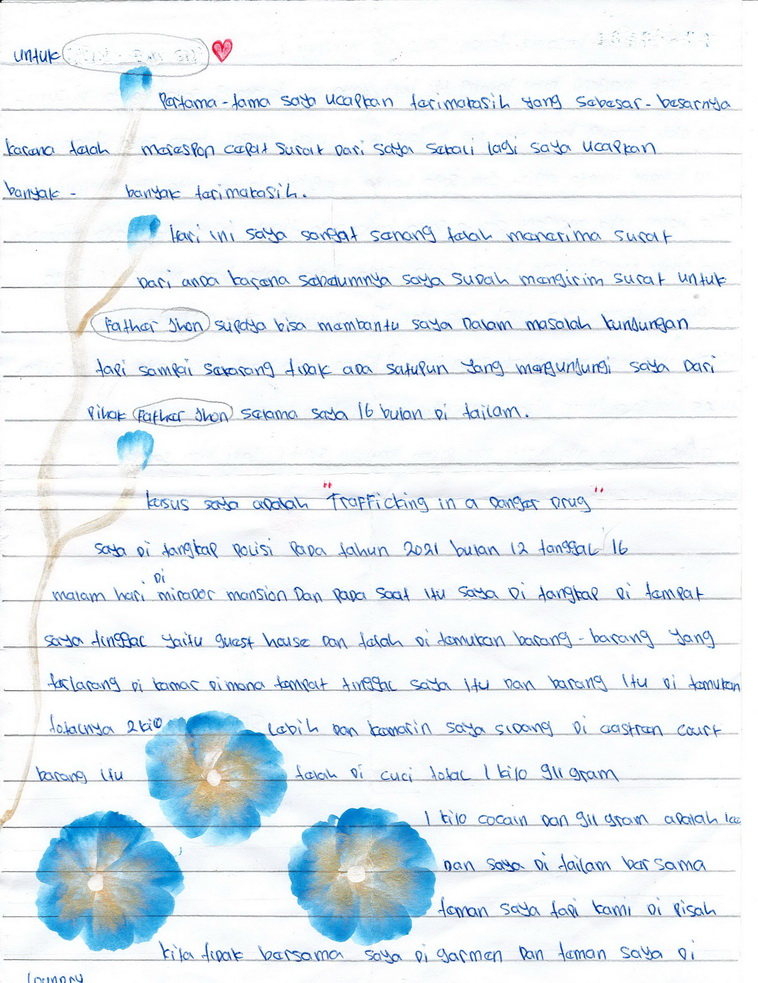 untuk
Pertama-tama saya ucapkan terimakasih yang sebesar-besarnya
karena telah merespon cepat surat Dari saya sekali lagi saya ucapkan
banyak - banyak terimakasih.
Hari ini saya sangat senang telah menerima surat
Dari anda karena sebelumnya saya sudah mengirim surat untuk
Father Jhon supaya bisa membantu saya Dalam masalah kunjungan
tapi sampai sekarang tidak ada satupun yang mengunjungi saya Dari
Pihak Father Jhon selama saya 16 bulan Di Jailam.
kasus saya adalah "Trafficking in a Danger Drug"
saya Di tangkap Polisi Pada tahun 2021 bulan 12 tanggal 16
malam hari Di mirador mansion Dan Pada saat itu saya Di tangkap Di tempat
saya tinggal yaitu guest house Dan telah Di temukan barang-barang yang
terlarang Di kamar Dimana tempat tinggal saya itu Dan barang itu Di temukan
totalnya 2 kilo lebih Dan kemarin saya sidang Di eastren court
barang itu telah Di cuci total 1 kilo 911 gram
1 kilo cocain Dan 911 gram adalah
Dan saya Di Jailam bersama
teman saya tapi kami Di Pisah
kita tidak bersama saya Di garmen Dan teman saya Di
loundry